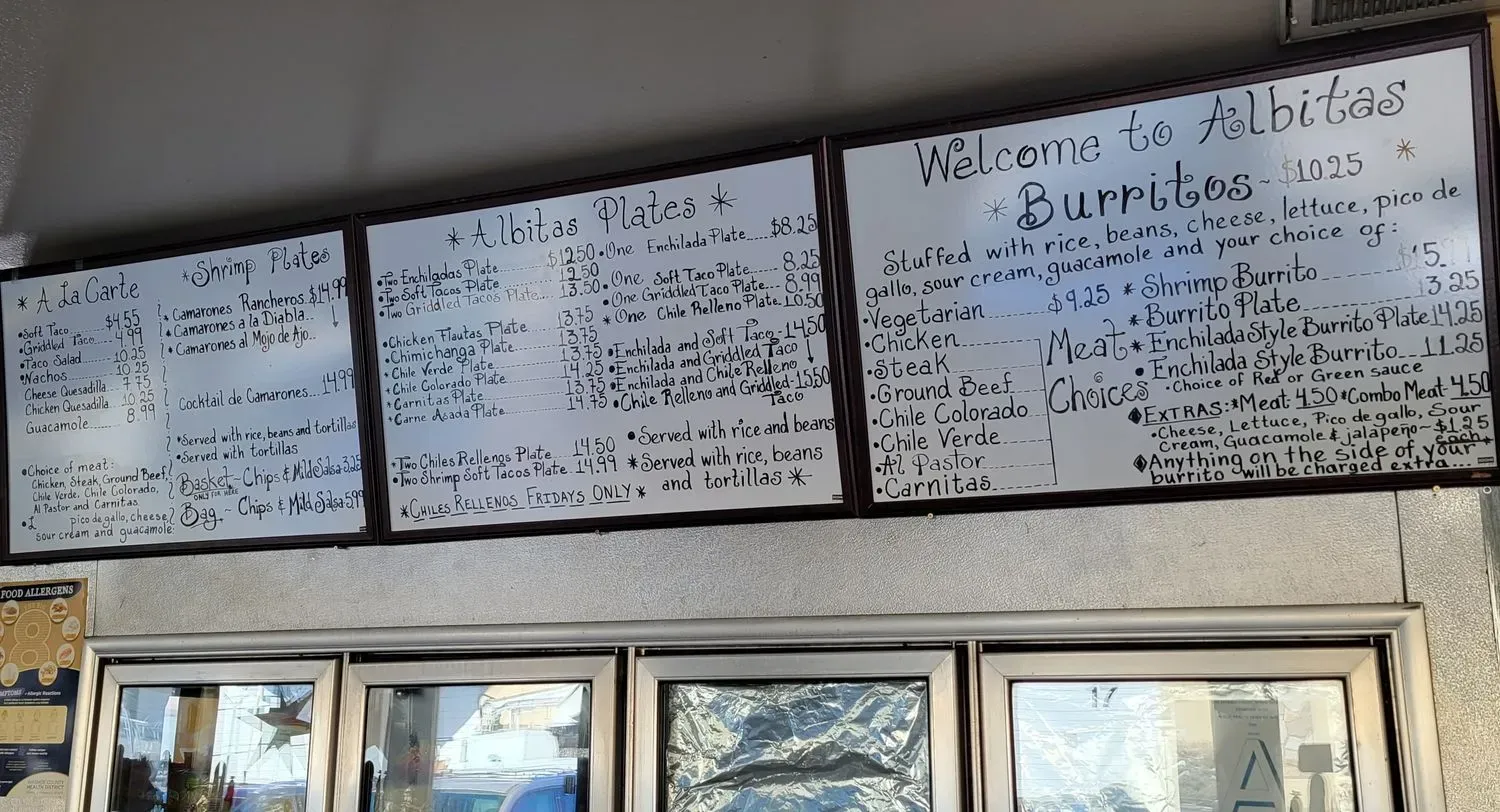 * A La Carte
• Soft Taco $4.55
• Griddled Taco 4.99
• Taco Salad 10.25
• Nachos 10.25
Cheese Quesadilla 7.75
Chicken Quesadilla 10.25
Guacamole 8.99
• Choice of meat:
Chicken, Steak, Ground Beef,
Chile Verde, Chile Colorado,
Al Pastor and Carnitas
pico de gallo, cheese
sour cream and guacamole
* Shrimp Plates
* Camarones Rancheros $14.99
* Camarones a la Diabla
* Camarones al Mojo de Ajo
Cocktail de Camarones 14.99
* Served with rice, beans and tortillas
• Served with tortillas
Basket ~ Chips & Mild Salsa 3.25
ONLY FOR HERE
Bag ~ Chips & Mild Salsa 5.99
* Albitas Plates *
• Two Enchiladas Plate $12.50
• Two Soft Tacos Plate 12.50
• Two Griddled Tacos Plate 13.50
• Chicken Flautas Plate 13.75
• Chimichanga Plate 13.75
* Chile Verde Plate 13.75
* Chile Colorado Plate 14.25
* Carnitas Plate 13.75
* Carne Asada Plate 14.75
* Two Chiles Rellenos Plate 14.50
• Two Shrimp Soft Tacos Plate 14.99
* CHILES RELLENOS FRIDAYS ONLY *
• One Enchilada Plate $8.25
• One Soft Taco Plate 8.25
• One Griddled Taco Plate 8.99
* One Chile Relleno Plate 10.50
• Enchilada and Soft Taco 14.50
• Enchilada and Griddled Taco
• Enchilada and Chile Relleno
• Chile Relleno and Griddled Taco 15.50
• Served with rice and beans
* Served with rice, beans
and tortillas *
Welcome to Albitas
* Burritos ~ $10.25 *
Stuffed with rice, beans, cheese, lettuce, pico de
gallo, sour cream, guacamole and your choice of:
• Vegetarian $9.25
• Chicken
• Steak
• Ground Beef
• Chile Colorado
• Chile Verde
• Al Pastor
• Carnitas
Meat
Choices
* Shrimp Burrito
* Burrito Plate 13.25
* Enchilada Style Burrito Plate 14.25
• Enchilada Style Burrito 11.25
• Choice of Red or Green sauce
◆ EXTRAS: * Meat 4.50 * Combo Meat 4.50
• Cheese, Lettuce, Pico de gallo, Sour
Cream, Guacamole & jalapeño ~ $1.25 each *
◆ Anything on the side of your
burrito will be charged extra...
FOOD ALLERGENS
8
Allergic Reactions
WASHOE COUNTY
HEALTH DISTRICT
17
A